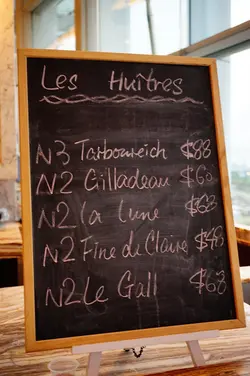 Les Huîtres
N3 Tarboureich $88
N2 Gilladeau $68
N2 la lune $68
N2 Fine de Claire $48
N2 Le Gall $68